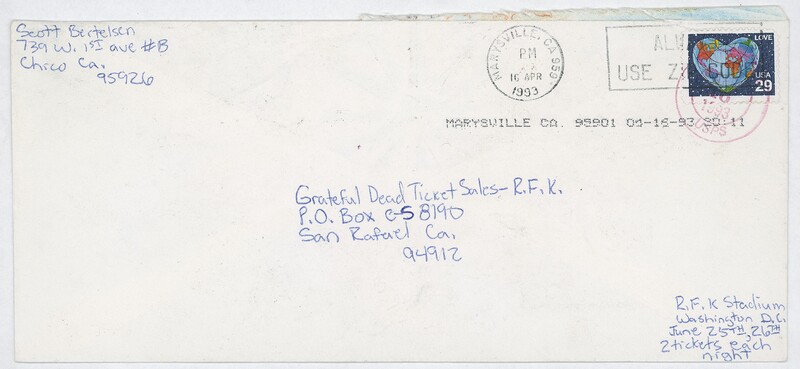 Scott Bertelsen
739 W. 1ST ave #B
Chico Ca.
95926
MARYSVILLE, CA 959
PM
16 APR
1993
USE ZI
LOVE
USA
29
1993
USPS
MARYSVILLE CA. 95901 04-16-93 20:11
Grateful Dead Ticket Sales - R.F.K.
P.O. Box C-S 8190
San Rafael Ca.
94912
R.F.K Stadium
Washington D.C.
June 25TH, 26TH
2 tickets each
night